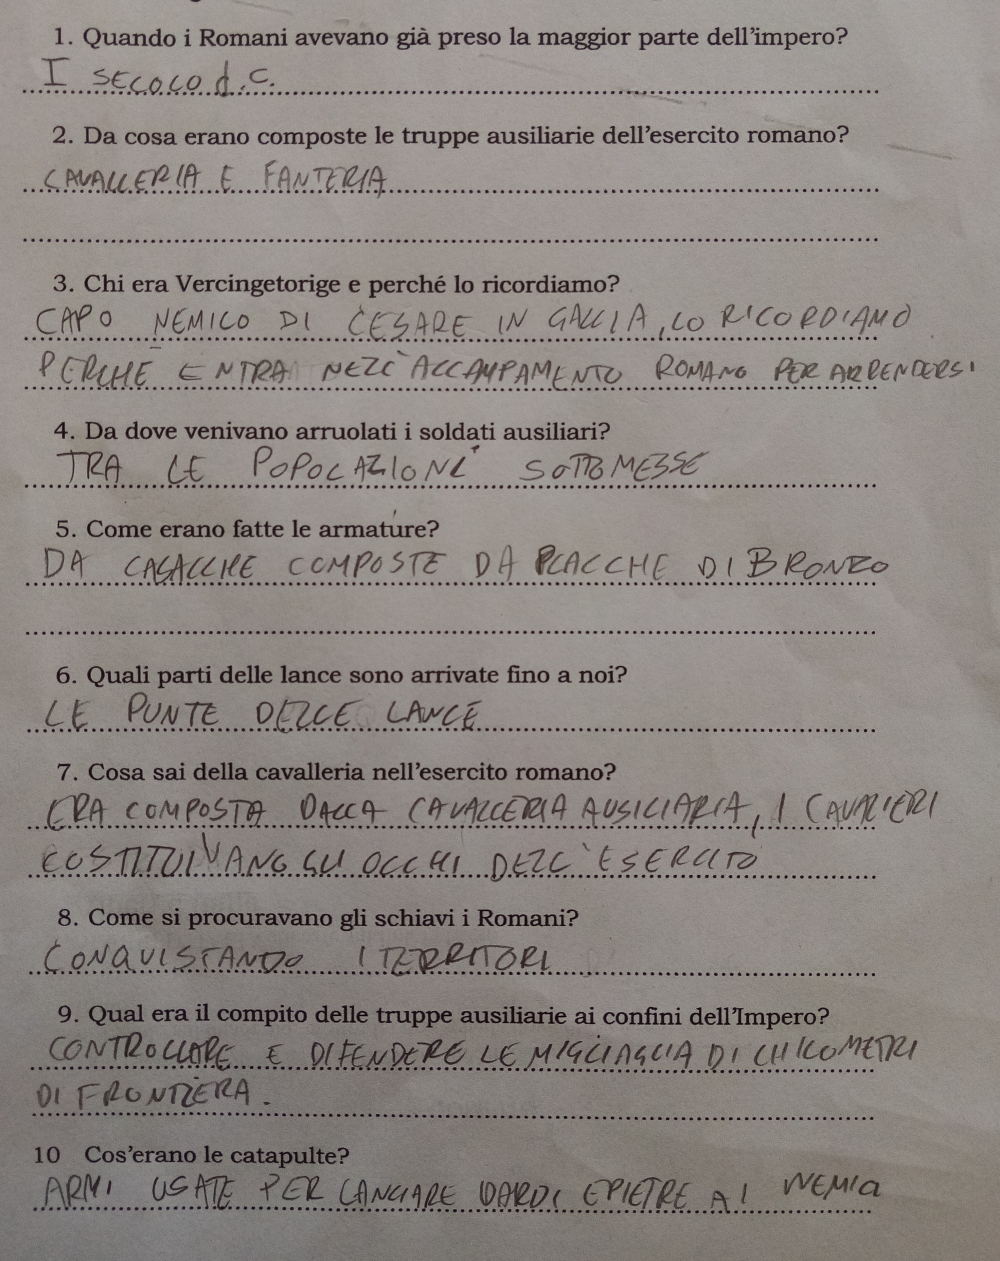 1. Quando i Romani avevano già preso la maggior parte dell'impero?
I SECOLO d.C.
2. Da cosa erano composte le truppe ausiliarie dell'esercito romano?
CAVALLERIA E FANTERIA
3. Chi era Vercingetorige e perché lo ricordiamo?
CAPO NEMICO DI CESARE IN GALLIA, LO RICORDIAMO
PERCHÉ ENTRA NELL'ACCAMPAMENTO ROMANO PER ARRENDERSI
4. Da dove venivano arruolati i soldati ausiliari?
TRA LE POPOLAZIONI SOTTOMESSE
5. Come erano fatte le armature?
DA CASACCHE COMPOSTE DA PLACCHE DI BRONZO
6. Quali parti delle lance sono arrivate fino a noi?
LE PUNTE DELLE LANCE
7. Cosa sai della cavalleria nell'esercito romano?
ERA COMPOSTA DALLA CAVALLERIA AUSILIARIA, I CAVALIERI
COSTITUIVANO GLI OCCHI DELL'ESERCITO
8. Come si procuravano gli schiavi i Romani?
CONQUISTANDO I TERRITORI
9. Qual era il compito delle truppe ausiliarie ai confini dell'Impero?
CONTROLLARE E DIFENDERE LE MIGLIAGLIA DI CHILOMETRI
DI FRONTIERA.
10 Cos'erano le catapulte?
ARMI USATE PER LANCIARE DARDI E PIETRE AI NEMICI